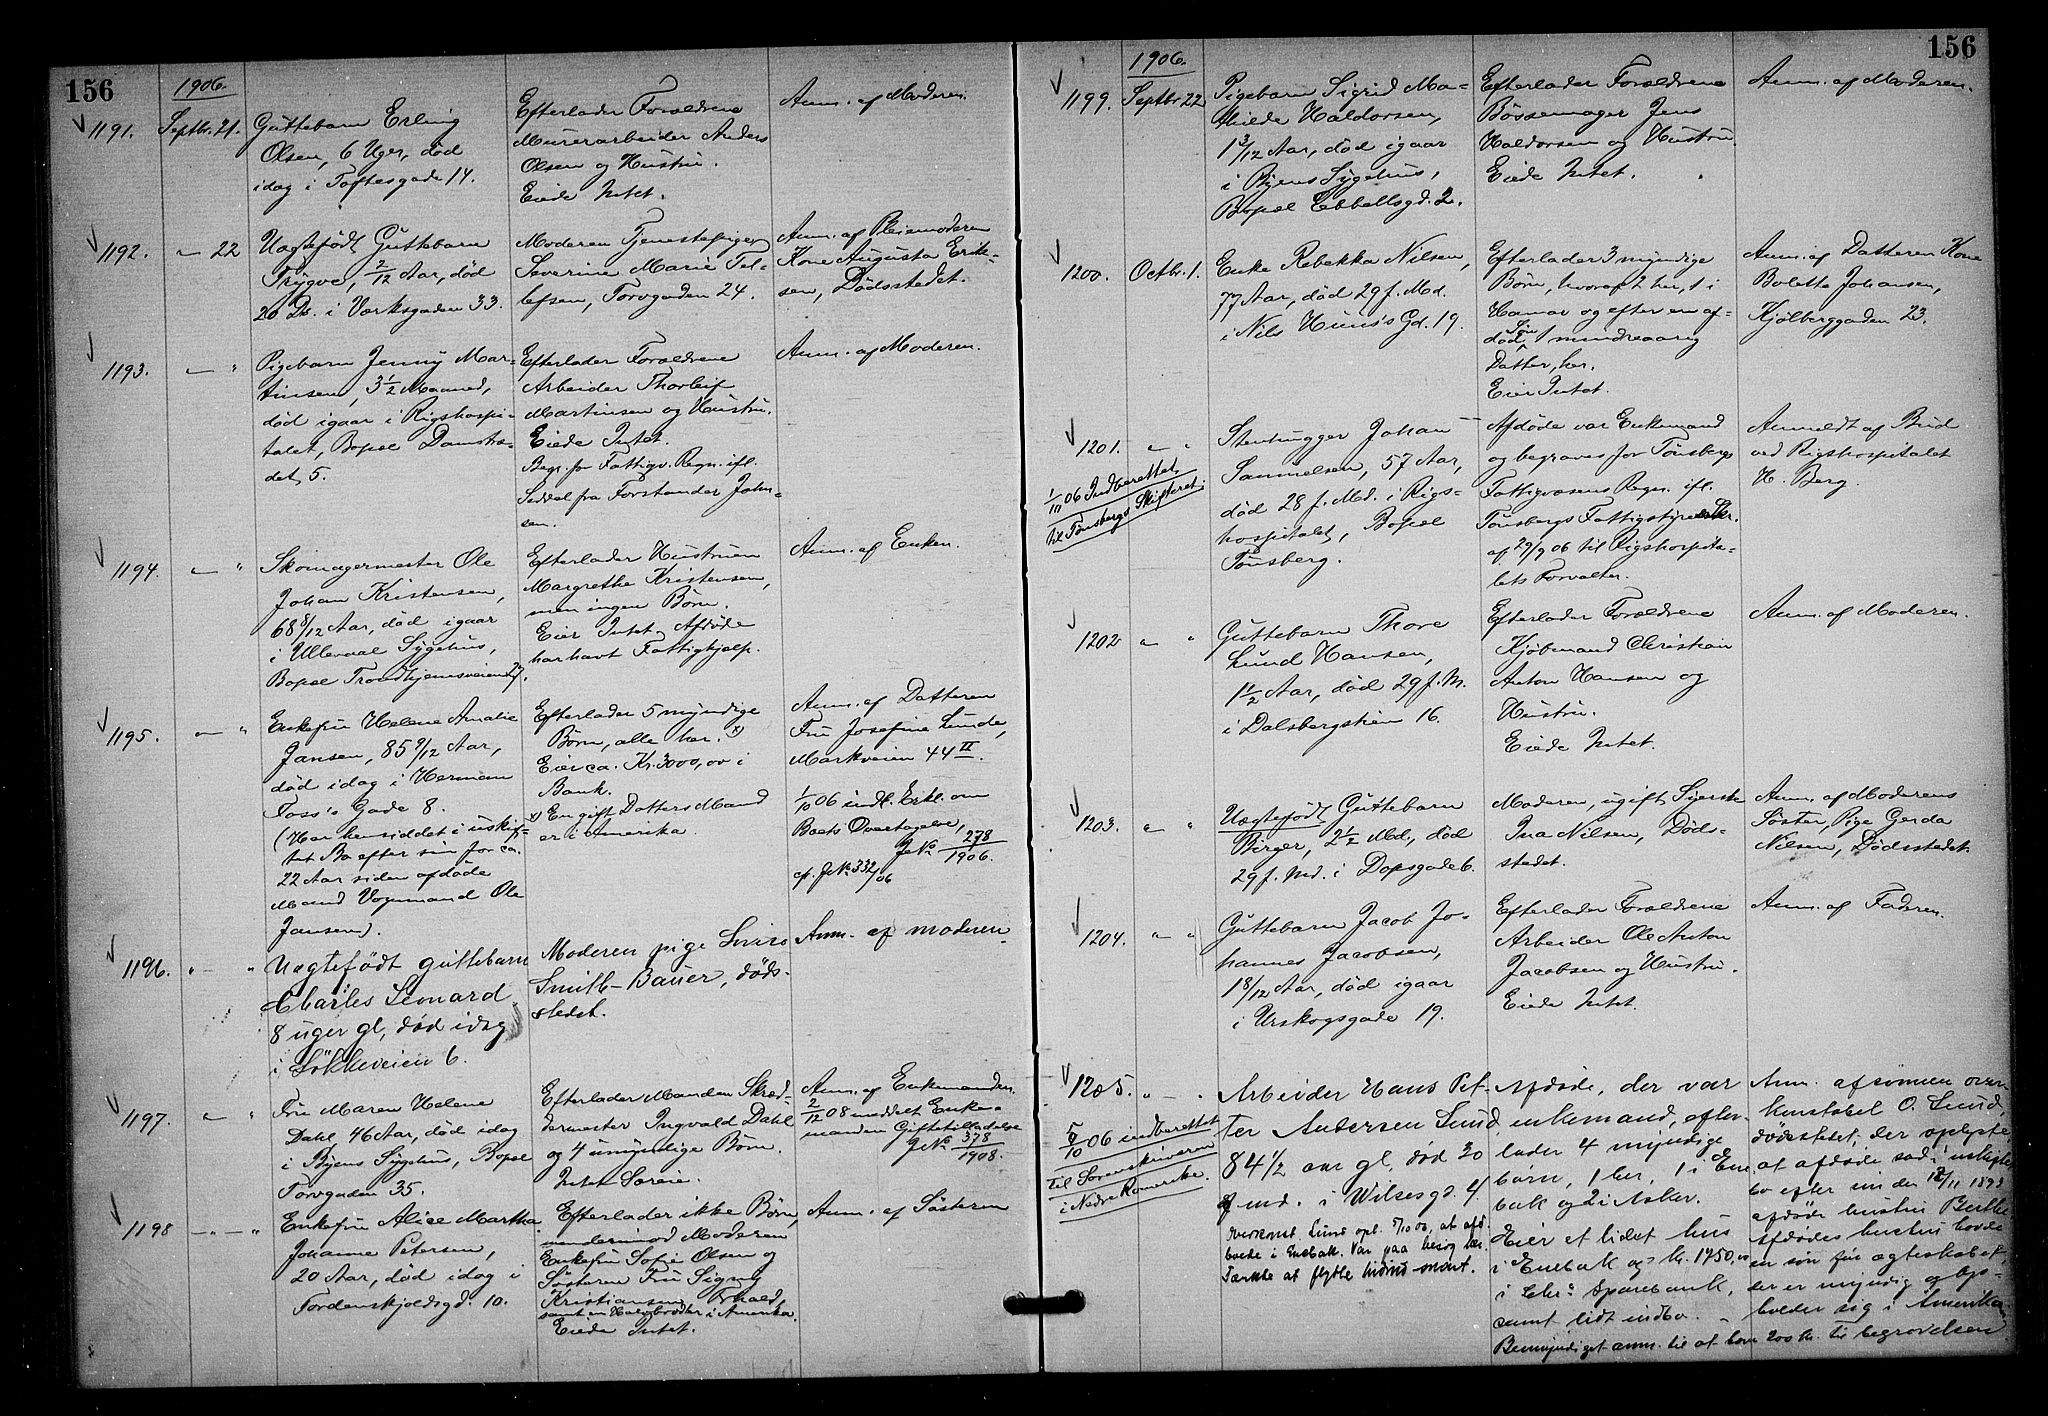 156
1906.
1191. Septbr. 21.
Guttebarn Erling
Olsen, 6 Uger, død
idag i Toftesgade 14.
Efterlader Forældrene
Murerarbeider Anders
Olsen og Hustru.
Eiede Intet.
Anm. af Moderen.
1192. — 22
Uægtefødt Guttebarn
Trygve, 2/12 Aar, død
20 Ds. i Værksgaden 33.
Moderen Tjenestepige
Severine Marie Tel-
lefsen, Torvgaden 24.
Anm. af Pleiemoderen
Kone Augusta Erik-
sen, Dødsstedet.
1193. — "
Pigebarn Jenny Mar-
tinsen, 3 1/2 Maaned,
død igaar i Rigshospi-
talet, Bopæl Damstræ-
det 5.
Efterlader Forældrene
Arbeider Thorleif
Martinsen og Hustru.
Eiede Intet.
Begr. for Fattigv. Regn. ifl.
Seddel fra Forstander John-
sen.
Anm. af Moderen.
1194. — "
Skomagermester Ole
Johan Kristensen,
68 8/12 Aar, død igaar
i Ulleraal Sygehus,
Bopæl Trondhjemsveien 27.
Efterlader Hustruen
Margrethe Kristensen,
men ingen Børn.
Eier Intet. Afdøde
har havt Fattighjælp.
Anm. af Enken.
1195. — "
Enkefru Helene Amalie
Jansen, 85 9/12 Aar,
død idag i Herman
Foss's Gade 8.
(Har hensiddet i uskif-
tet Bo efter sin for ca.
22 Aar siden afdøde
Mand Vognmand Ole
Jansen).
Efterlader 5 myndige
Børn, alle her. x)
Eier ca. Kr. 3000,00 i
Bank.
x) En gift Datters Mand
er i Amerika.
Anm. af Datteren
Fru Josefine Lunde,
Markveien 44 II.
1/10 06 indl. Erkl. om
Boets Overtagelse,
J.No. 278/1906.
cfr. J.No. 332/06
1196. " — "
Uægtefødt guttebarn
Charles Leonard
8 uger gl, død idag
i Løkkeveien 6.
Moderen pige
Smith-Bauer, døds-
stedet.
Anm. af moderen.
1197. — "
Fru Maren Helene
Dahl, 46 Aar, død idag
i Byens Sygehus, Bopæl
Torvgaden 35.
Efterlader Manden Skræd-
dermester Ingvald Dahl
og 4 umyndige Børn.
Intet Særeie.
Anm. af Enkemanden.
2/12 08 meddelt Enke-
manden Giftetilladelse
J.No. 378/1908.
1198 — " — "
Enkefru Alice Martha
Johanne Petersen,
20 Aar, død idag i
Tordenskjoldsgd. 10.
Efterlader ikke Børn,
mendermod Moderen
Enkefru Sofie Olsen og
Søsteren Fru Signy
Kristiansen,
samt en Halvbroder i Amerika.
Eiede Intet.
Anm. af Søsteren
156
1906.
1199. Septbr. 22
Pigebarn Sigrid Ma-
thilde Haldorsen,
1 3/12 Aar, død igaar
i Byens Sygehus,
Bopæl Ebbellsgd. 2.
Efterlader Forældrene
Bøssemager Jens
Haldorsen og Hustru.
Eiede Intet.
Anm. af Moderen.
1200. Octbr. 1.
Enke Rebekka Nilsen,
77 Aar, død 29 f. Md.
i Nils Huus's Gd. 19.
Efterlader 3 myndige
Børn, hvoraf 2 her, 1 i
Hamar og efter en af-
død Søn 1 mindreaarig
Datter, her.
Eier Intet.
Anm. af Datteren Kone
Bolette Johansen,
Kjølberggaden 23.
1201. " "
1/10 06 Indberettet
til Tønsbergs Skifteret.
Stenhugger Johan
Samuelsen, 57 Aar,
død 28 f. Md. i Rigs-
hospitalet, Bopæl
Tønsberg.
Afdøde var Enkemand
og begraves for Tønsbergs
Fattigvæsens Regn. ifl.
Tønsbergs Fattigstyres Skr.
af 29/9 06 til Rigshospita-
lets Forvalter.
Anmeldt af Bud
ved Rigshospitalet
H. Berg.
1202 " "
Guttebarn Thore
Lund Hansen,
1 1/2 Aar, død 29 f. M.
i Dalsbergstien 16.
Efterlader Forældrene
Kjøbmand Christian
Anton Hansen og
Hustru.
Eiede Intet.
Anm. af Moderen.
1203. " "
Uægtefødt Guttebarn
Birger, 2 1/2 Md., død
29 f. Md. i Dopsgade 6.
Moderen, ugift Syerske
Ina Nilsen, Døds-
stedet.
Anm. af Moderens
Søster, Pige Gerda
Nilsen, Dødsstedet.
1204. " "
Guttebarn Jacob Jo-
hannes Jacobsen,
1 8/12 Aar, død igaar
i Urskogsgade 19.
Efterlader Forældrene
Arbeider Ole Anton
Jacobsen og Hustru.
Eiede Intet.
Anm. af Faderen.
1205. " — "
5/10 06 indberettet
til Sorenskriveren
i Nedre Romerike.
Arbeider Hans Pet-
ter Andersen Lund
84 1/2 aar gl, død 30
f. md. i Wilsesgd. 4.
Overkonst. Lund opl. 5/10 06, at afd.
boede i Enebak. Var paa besøg her.
Tænkte at flytte
Afdøde, der var
enkemand, efter-
lader 4 myndige
børn, 1 her, 1 i Ene
bak og 2 i Asker.
Eier et lidet hus
i Enebak og kr. 1750,00
i Chr.a Sparebank,
samt lidt indbo.
Anm. af sønnen over-
konstabel O. Lund,
dødsstedet, der oplyste
at afdøde sad i uskiftet
bo efter sin den 18/11 1893
afdøde hustru Berthe
Afdødes hustru havde
en søn før ægteskabet,
der er myndig og op-
holder sig i Amerika
Bemyndiget anm. til at hæve 200 kr. til begravelsen